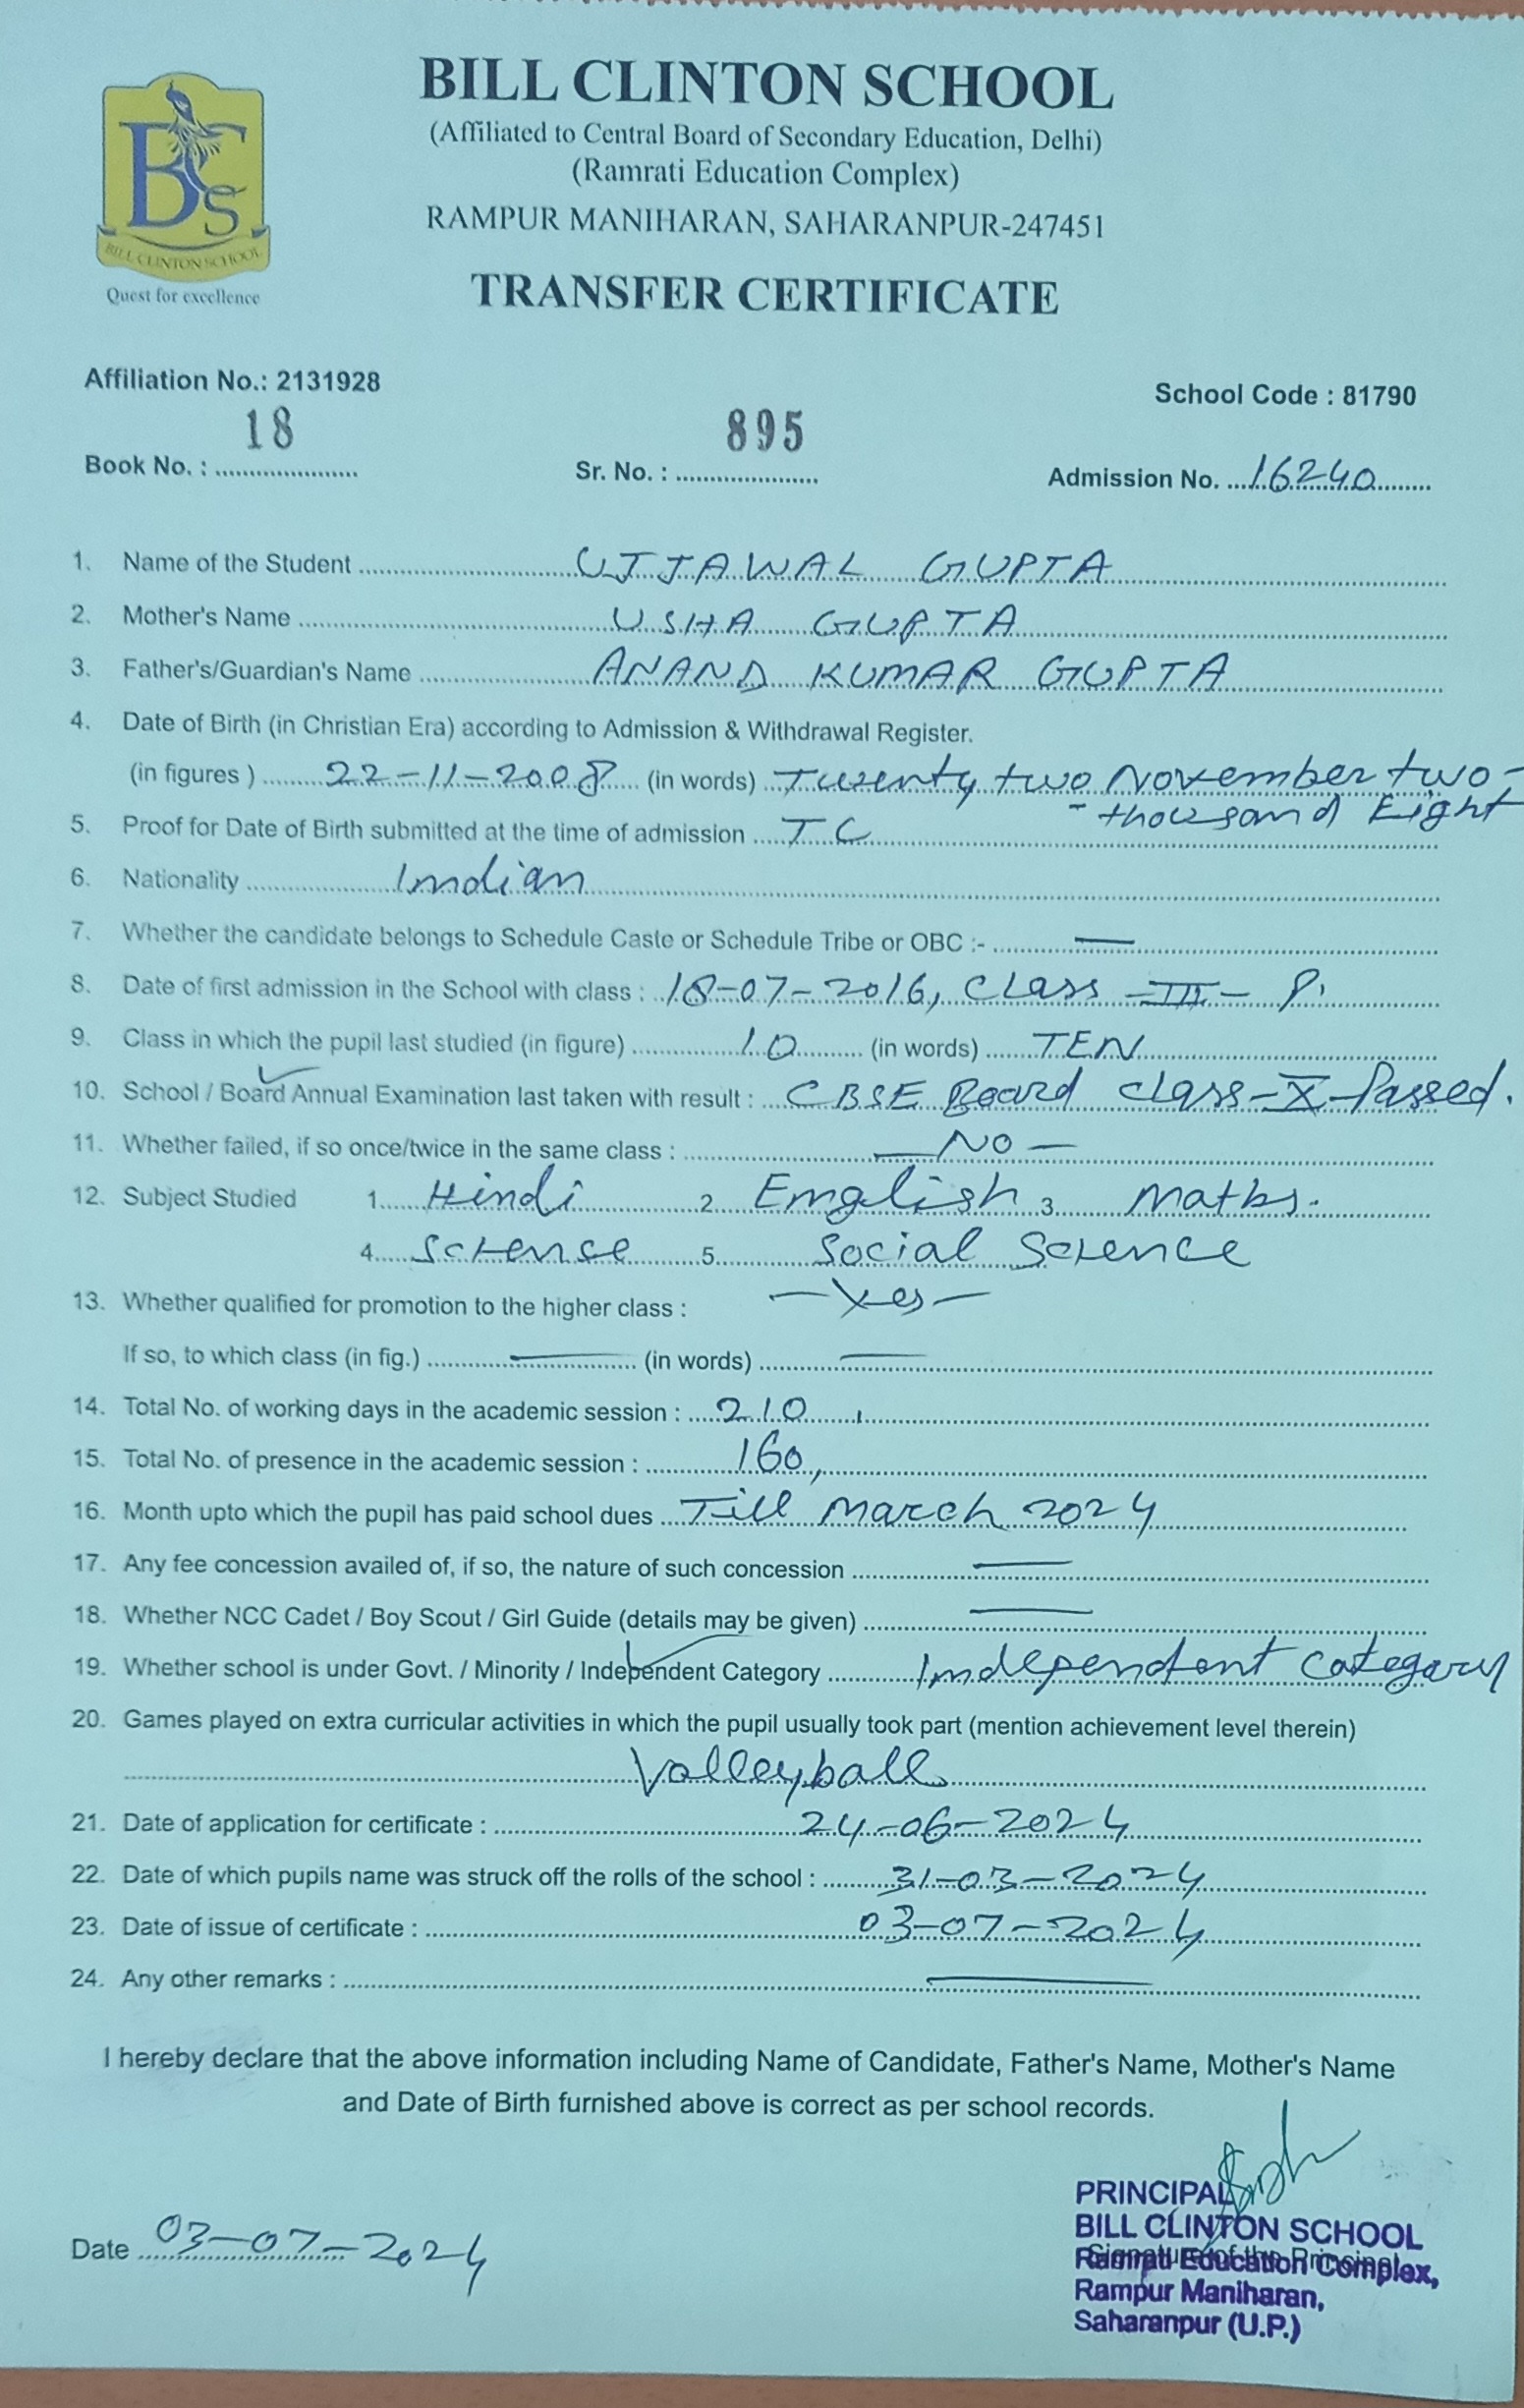 BILL CLINTON SCHOOL
(Affiliated to Central Board of Secondary Education, Delhi)
(Ramrati Education Complex)
RAMPUR MANIHARAN, SAHARANPUR-247451
BCS
BILL CLINTON SCHOOL
Quest for excellence
TRANSFER CERTIFICATE
Affiliation No.: 2131928 School Code : 81790
Book No. : 18 Sr. No. : 895 Admission No. 16240
1. Name of the Student UJJAWAL GUPTA
2. Mother's Name USHA GUPTA
3. Father's/Guardian's Name ANAND KUMAR GUPTA
4. Date of Birth (in Christian Era) according to Admission & Withdrawal Register.
(in figures ) 22-11-2008 (in words) Twenty two November two-
- thousand Eight
5. Proof for Date of Birth submitted at the time of admission TC
6. Nationality Indian
7. Whether the candidate belongs to Schedule Caste or Schedule Tribe or OBC :- —
8. Date of first admission in the School with class : 18-07-2016, Class -III- P.
9. Class in which the pupil last studied (in figure) 10 (in words) TEN
10. School / Board Annual Examination last taken with result : CBSE Board class-X-Passed.
11. Whether failed, if so once/twice in the same class : — NO —
12. Subject Studied 1. Hindi 2. English 3. Maths.
4. Science 5. Social Science
13. Whether qualified for promotion to the higher class : — Yes —
If so, to which class (in fig.) — (in words) —
14. Total No. of working days in the academic session : 210
15. Total No. of presence in the academic session : 160,
16. Month upto which the pupil has paid school dues Till March 2024
17. Any fee concession availed of, if so, the nature of such concession —
18. Whether NCC Cadet / Boy Scout / Girl Guide (details may be given) —
19. Whether school is under Govt. / Minority / Independent Category Independent category
20. Games played on extra curricular activities in which the pupil usually took part (mention achievement level therein)
Volleyball
21. Date of application for certificate : 24-06-2024
22. Date of which pupils name was struck off the rolls of the school : 31-03-2024
23. Date of issue of certificate : 03-07-2024
24. Any other remarks : —
I hereby declare that the above information including Name of Candidate, Father's Name, Mother's Name
and Date of Birth furnished above is correct as per school records.
PRINCIPAL
BILL CLINTON SCHOOL
Signature of the Principal
Ramrati Education Complex,
Rampur Maniharan,
Saharanpur (U.P.)
Date 03-07-2024